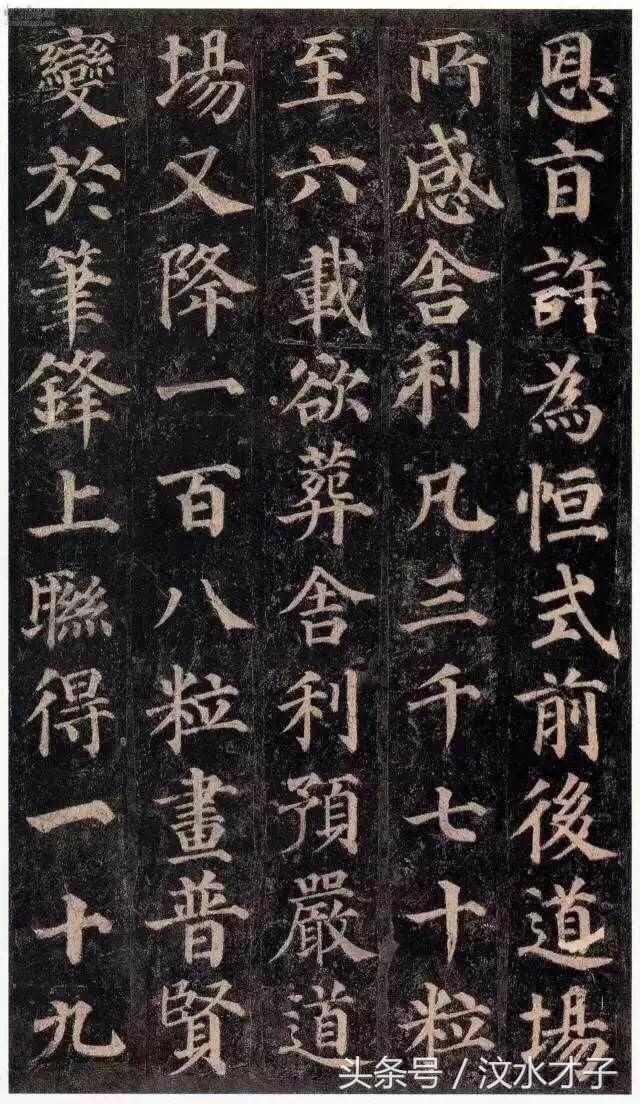 恩旨許為恒式前後道場
所感舍利凡三千七十粒
至六載欲葬舍利預嚴道
場又降一百八粒畫普賢
變於筆鋒上聯得一十九
头条号 / 汶水才子